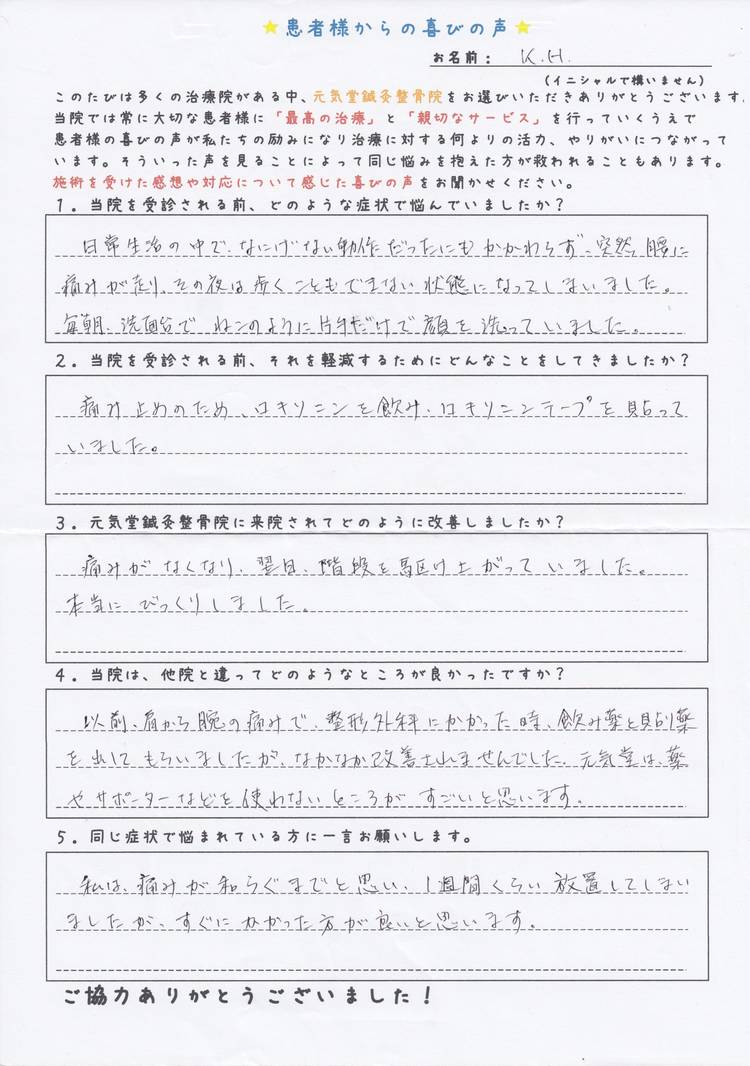 ★患者様からの喜びの声★
お名前: K.H.
(イニシャルで構いません)
このたびは多くの治療院がある中、元気堂鍼灸整骨院をお選びいただきありがとうございます。
当院では常に大切な患者様に「最高の治療」と「親切なサービス」を行っていくうえで
患者様の喜びの声が私たちの励みになり治療に対する何よりの活力、やりがいにつながって
います。そういった声を見ることによって同じ悩みを抱えた方が救われることもあります。
施術を受けた感想や対応について感じた喜びの声をお聞かせください。
1.当院を受診される前、どのような症状で悩んでいましたか?
日常生活の中で、なにげない動作だったにもかかわらず、突然、腰に
痛みが走り、その夜は歩くこともできない状態になってしまいました。
毎朝、洗面台で ねこのように片手だけで顔を洗っていました。
2.当院を受診される前、それを軽減するためにどんなことをしてきましたか?
痛み止めのため、ロキソニンを飲み、ロキソニンテープを貼って
いました。
3.元気堂鍼灸整骨院に来院されてどのように改善しましたか?
痛みがなくなり、翌日、階段を駆け上がっていました。
本当に びっくりしました。
4.当院は、他院と違ってどのようなところが良かったですか?
以前、肩から腕の痛みで、整形外科にかかった時、飲み薬と貼り薬
を出してもらいましたが、なかなか改善されませんでした。元気堂は、薬
やサポーターなどを使わないところが すごいと思います。
5.同じ症状で悩まれている方に一言お願いします。
私は、痛みが和らぐまでと思い、1週間くらい放置してしまい
ましたが、すぐにかかった方が良いと思います。
ご協力ありがとうございました!